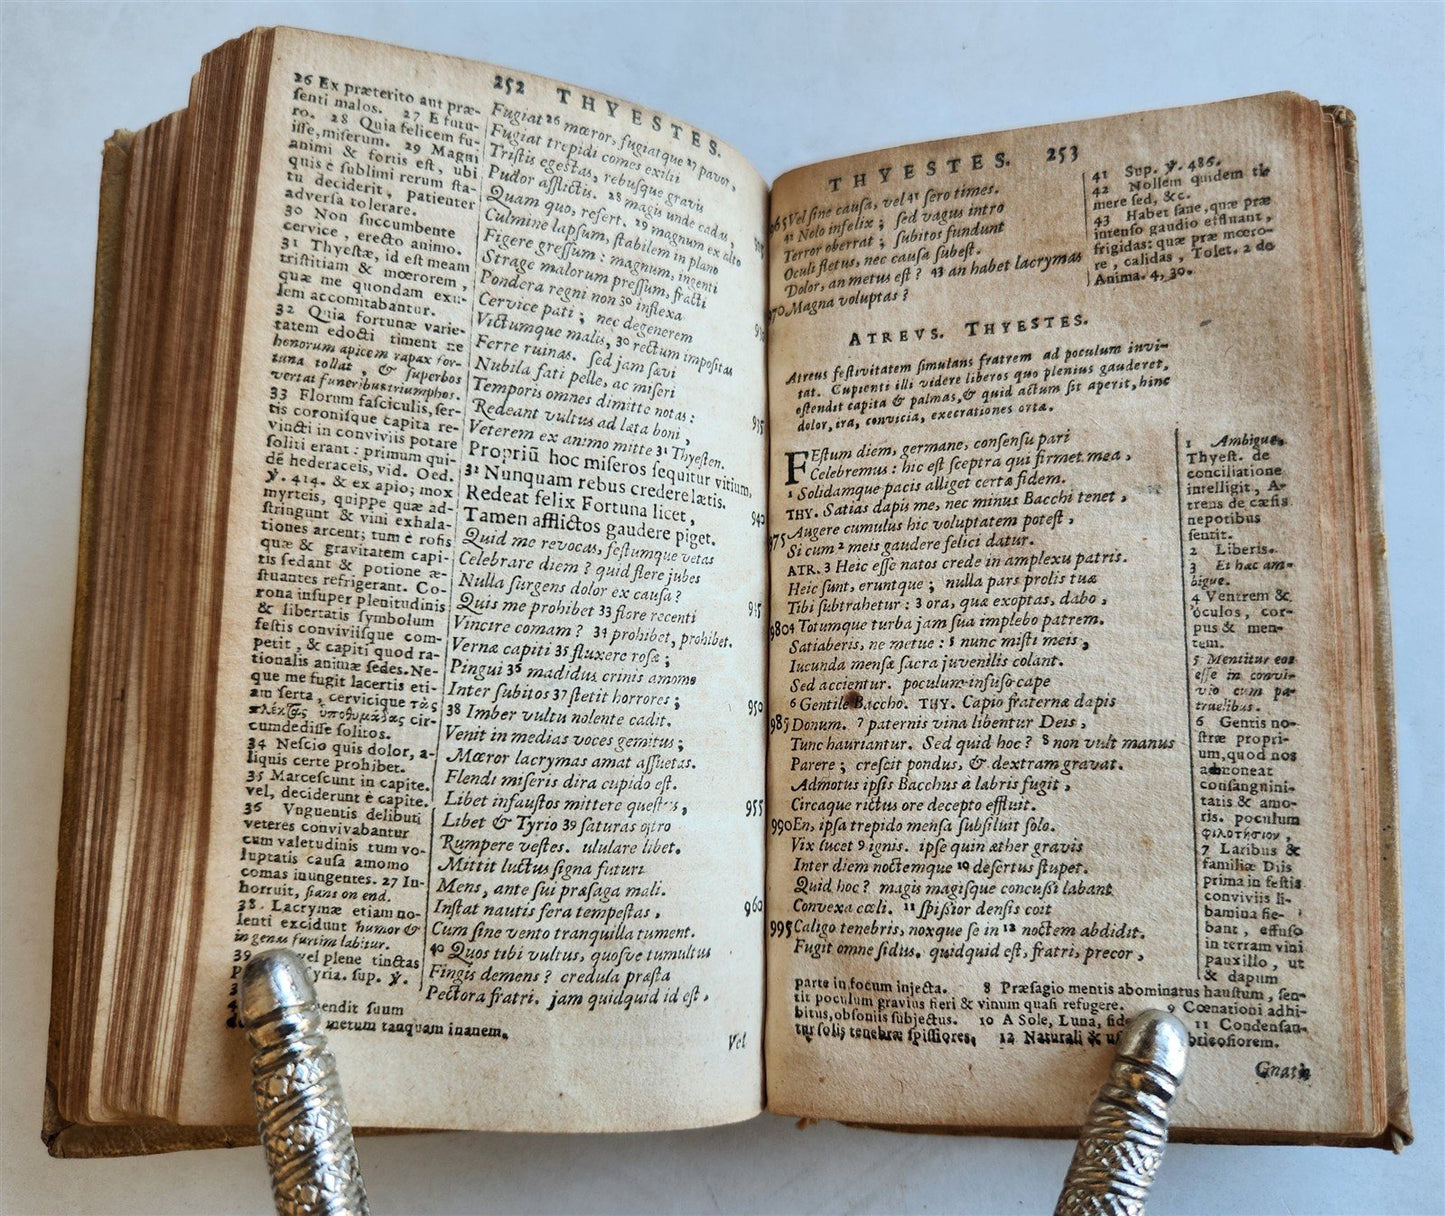 252 THYESTES.
26 Ex præterito aut præ-
ſenti malos. 27 E futu-
ro. 28 Quia felicem fu-
iſſe, miſerum. 29 Magni
animi & fortis eſt, ubi
quis è ſublimi rerum ſta-
tu deciderit, patienter
adverſa tolerare.
30 Non ſuccumbente
cervice, erecto animo.
31 Thyeſtæ, id eſt meam
triſtitiam & mœrorem,
quæ me quondam exu-
lem accomitabantur.
32 Quia fortunæ varie-
tatem edocti timent ne
honorum apicem rapax for-
tuna tollat, & ſuperbos
vertat funeribus triumphos.
33 Florum faſciculis, ſer-
tis coroniſque capita re-
vincti in conviviis potare
ſoliti erant: primum qui-
dē hederaceis, vid. Oed.
ꝟ. 414. & ex apio; mox
myrteis, quippe quæ ad-
ſtringunt & vini exhala-
tiones arcent; tum è roſis
quæ & gravitatem capi-
tis ſedant & potione æ-
ſtuantes refrigerant. Co-
rona inſuper plenitudinis
& libertatis ſymbolum
feſtis conviviiſque com-
petit, & capiti quod ra-
tionalis animæ ſedes. Ne-
que me fugit lacertis eti-
am ſerta, cervicique τὰς
πλεκτὰς ὑποθυμιάδας cir-
cumdediſſe ſolitos.
34 Neſcio quis dolor, a-
liquis certe prohibet.
35 Marceſcunt in capite.
vel, deciderunt è capite.
36 Vnguentis delibuti
veteres convivabantur
cum valetudinis tum vo-
luptatis cauſa amomo
comas inungentes. 27 In-
horruit, ſians on end.
38. Lacrymæ etiam no-
lenti excidunt humor &
in genas furtim labitur.
39 vel plene tinctas
Syria. ſup. ꝟ.
endit ſuum
metum tanquam inanem.
Fugiat 26 mœror, fugiatque 27 pavor,
Fugiat trepidi comes exilii
Triſtis egeſtas, rebuſque gravis
Pudor afflictis. 28 magis unde cadas,
Quam quo, refert. 29 magnum ex alto
Culmine lapſum, ſtabilem in plano
Figere greſſum: magnum, ingenti
Strage malorum preſſum, fracti
Pondera regni non 30 inflexa
Cervice pati; nec degenerem
Victumque malis, 30 rectum impoſitas
Ferre ruinas. ſed jam ſævi
Nubila fati pelle, ac miſeri
Temporis omnes dimitte notas:
Redeant vultus ad læta boni, 935
Veterem ex animo mitte 31 Thyeſten.
Propriū hoc miſeros ſequitur vitium,
32 Nunquam rebus credere lætis.
Redeat felix Fortuna licet, 940
Tamen afflictos gaudere piget.
Quid me revocas, feſtumque vetas
Celebrare diem? quid flere jubes
Nulla ſurgens dolor ex cauſa?
Quis me prohibet 33 flore recenti 945
Vincire comam? 34 prohibet, prohibet.
Vernæ capiti 35 fluxere roſæ;
Pingui 36 madidus crinis amomo
Inter ſubitos 37 ſtetit horrores; 950
38 Imber vultu nolente cadit.
Venit in medias voces gemitus;
Mœror lacrymas amat aſſuetas.
Flendi miſeris dira cupido eſt.
Libet infauſtos mittere queſtus, 955
Libet & Tyrio 39 ſaturas oſtro
Rumpere veſtes. ululare libet.
Mittit luctus ſigna futuri
Mens, ante ſui præſaga mali.
Inſtat nautis fera tempeſtas, 960
Cum ſine vento tranquilla tument.
40 Quos tibi vultus, quoſve tumultus
Fingis demens? credula præſta
Pectora fratri. jam quidquid id eſt,
Vel
THYESTES. 253
965 Vel ſine cauſa, vel 41 ſero times.
42 Nolo infelix; ſed vagus intro
Terror oberrat; ſubitos fundunt
Oculi fletus, nec cauſa ſubeſt.
Dolor, an metus eſt? 43 an habet lacrymas
970 Magna voluptas?
41 Sup. ꝟ. 486.
42 Nollem quidem ti-
mere ſed, &c.
43 Habet ſane, quæ præ
intenſo gaudio effluant,
frigidas: quæ præ mœro-
re, calidas, Tolet. 2 de
Anima. 4, 30.
ATREVS. THYESTES.
Atreus feſtivitatem ſimulans fratrem ad poculum invi-
tat. Cupienti illi videre liberos quo plenius gauderet,
oſtendit capita & palmas, & quid actum ſit aperit, hinc
dolor, ira, convicia, execrationes ortæ.
FEſtum diem, germane, conſenſu pari
Celebremus: hic eſt ſceptra qui firmet mea,
1 Solidamque pacis alliget certa fidem.
THY. Satias dapis me, nec minus Bacchi tenet,
975 Augere cumulus hic voluptatem poteſt,
Si cum 2 meis gaudere felici datur.
ATR. 3 Heic eſſe natos crede in amplexu patris.
Heic ſunt, eruntque; nulla pars prolis tuæ
Tibi ſubtrahetur: 3 ora, quæ exoptas, dabo,
980 4 Totumque turba jam ſua implebo patrem.
Satiaberis, ne metue: 5 nunc miſti meis,
Iucunda menſæ ſacra juvenilis colant.
Sed accientur. poculum infuſo cape
6 Gentile Baccho. THY. Capio fraternæ dapis
985 Donum. 7 paternis vina libentur Deis,
Tunc hauriantur. Sed quid hoc? 8 non vult manus
Parere; creſcit pondus, & dextram gravat.
Admotus ipſis Bacchus à labris fugit,
Circaque rictus ore decepto effluit.
990 En, ipſa trepido menſa ſubſiluit ſolo.
Vix lucet 9 ignis. ipſe quin æther gravis
Inter diem noctemque 10 deſertus ſtupet.
Quid hoc? magis magiſque concuſsi labant
Convexa cœli. 11 ſpiſsior denſis coit
995 Caligo tenebris, noxque ſe in 12 noctem abdidit.
Fugit omne ſidus. quidquid eſt, fratri, precor,
1 Ambigue,
Thyeſt. de
conciliatione
intelligit, A-
treus de cæſis
nepotibus
ſentit.
2 Liberis.
3 Et hac am-
bigue.
4 Ventrem &
oculos, cor-
pus & men-
tem.
5 Mentitur eos
eſſe in convi-
vio cum pa-
truelibus.
6 Gentis no-
ſtræ propri-
um, quod nos
admoneat
conſangnini-
tatis & amo-
ris. poculum
φιλοτήσιον,
7 Laribus &
familiæ Diis
prima in feſtis
conviviis li-
bamina fie-
bant, effuſo
in terram vini
pauxillo, ut
& dapum
parte in focum injecta. 8 Præſagio mentis abominatus hauſtum, ſen-
tit poculum gravius fieri & vinum quaſi refugere. 9 Cœnationi adhi-
bitus, obſoniis ſubjectus. 10 A Sole, Luna, 11 Condenſan-
tur ſolis tenebræ ſpiſſiores, 12 Naturali & bricoſiorem.
Gnatis